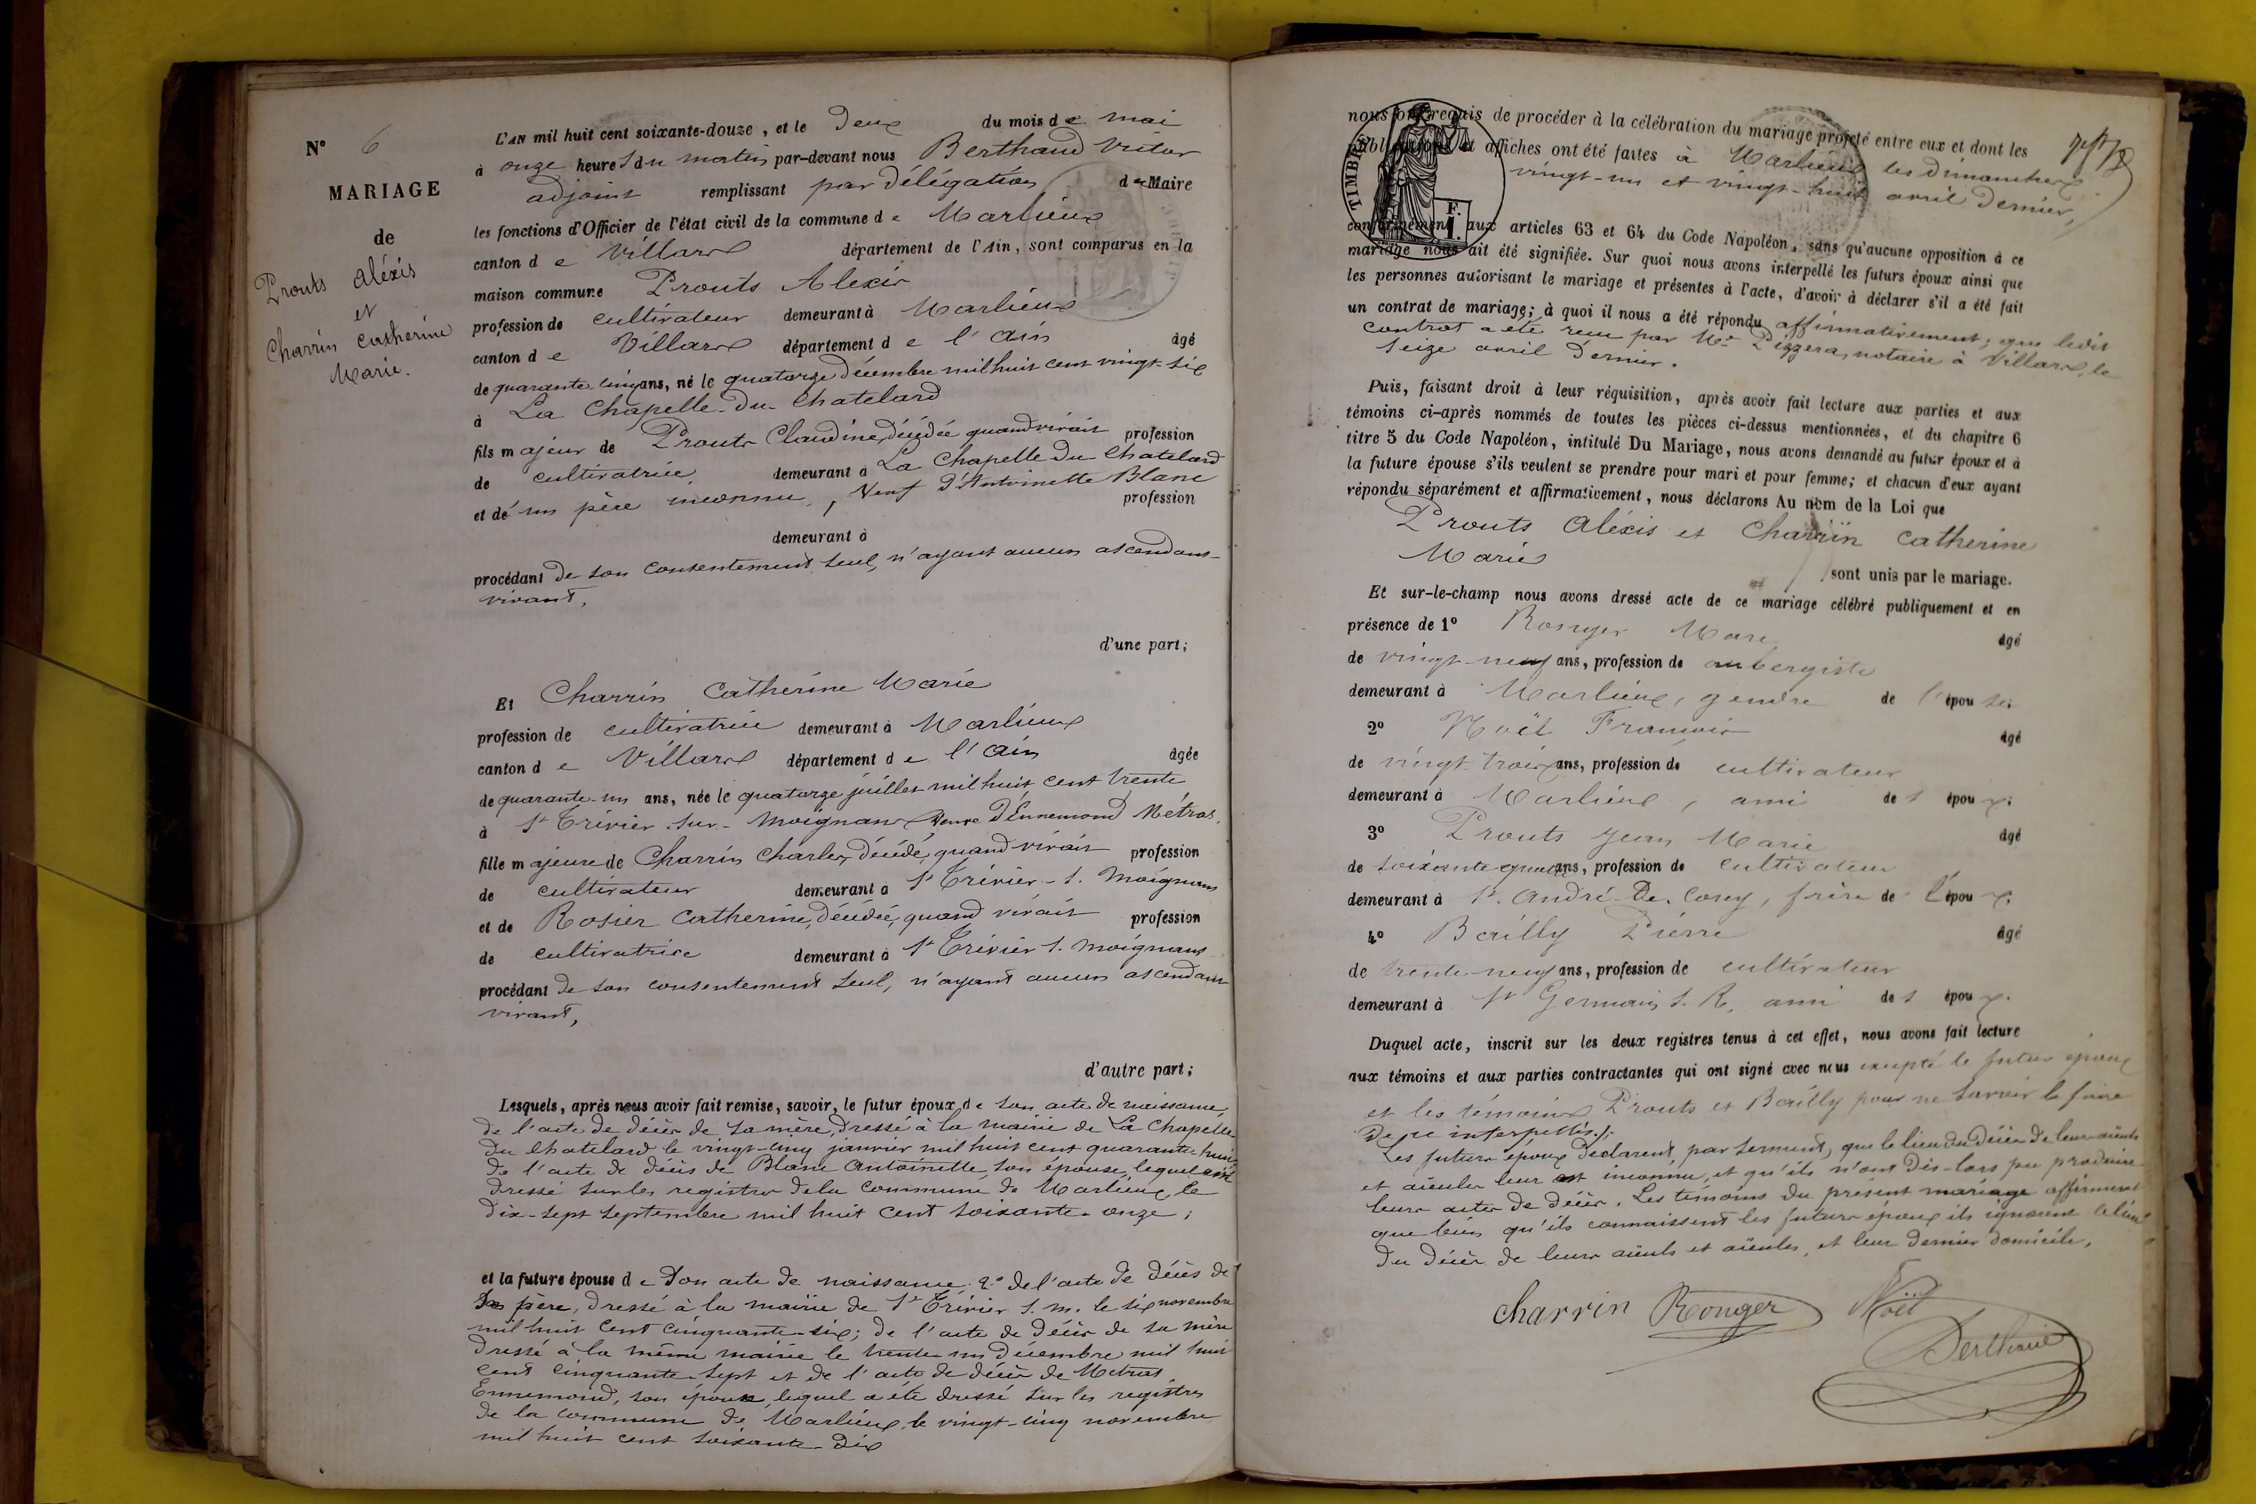 N° 6
MARIAGE
de
Prouts Aléxis
et
Charrin Catherine
Marie.
L'AN mil huit cent soixante-douze, et le deux du mois de mai
à onze heures du matin par-devant nous Berthaud Victor
adjoint remplissant par délégation du Maire
les fonctions d'Officier de l'état civil de la commune de Marlieux
canton de Villars département de l'Ain, sont comparus en la
maison commune Prouts Alexis
profession de cultivateur demeurant à Marlieux
canton de Villars département de l'Ain âgé
de quarante cinq ans, né le quatorze décembre mil huit cent vingt-six
à La Chapelle-du-Chatelard
fils majeur de Prouts Claudine, décédée quand vivait profession
de cultivatrice, demeurant à La Chapelle du Chatelard
et de un père inconnu, Veuf d'Antoinette Blanc
profession
demeurant à
procédant de son consentement seul, n'ayant aucun ascendant
vivant,
d'une part;
Et Charrin Catherine Marie
profession de cultivatrice demeurant à Marlieux
canton de Villars département de l'Ain âgée
de quarante-un ans, née le quatorze juillet mil huit cent trente
à St Trivier-sur-Moignans Veuve d'Ennemond Métras,
fille majeure de Charrin Charles, décédé, quand vivait profession
de cultivateur demeurant à St Trivier-s. Moignans
et de Rosier Catherine, décédée, quand vivait profession
de cultivatrice demeurant à St Trivier s. Moignans
procédant de son consentement seul, n'ayant aucun ascendant
vivant,
d'autre part;
Lesquels, après nous avoir fait remise, savoir, le futur époux de son acte de naissance,
de l'acte de décès de sa mère, dressé à la mairie de La Chapelle
du Chatelard le vingt-cinq janvier mil huit cent quarante huit
de l'acte de décès de Blanc Antoinette son épouse, lequel a été
dressé sur les registres de la commune de Marlieux, le
dix-sept septembre mil huit cent soixante-onze;
et la future épouse de son acte de naissance 2° de l'acte de décès de
son père, dressé à la mairie de St Trivier s. m. le six novembre
mil huit cent cinquante-six; de l'acte de décès de sa mère
dressé à la même mairie le trente un décembre mil huit
cent cinquante-sept et de l'acte de décès de Metras
Ennemond, son époux, lequel a été dressé sur les registres
de la commune de Marlieux, le vingt-cinq novembre
mil huit cent soixante-dix
TIMBRE
F.
1.
nous ont requis de procéder à la célébration du mariage projeté entre eux et dont les
publications et affiches ont été faites à Marlieux les dimanches
vingt-un et vingt-huit avril dernier,
conformément aux articles 63 et 64 du Code Napoléon, sans qu'aucune opposition à ce
mariage nous ait été signifiée. Sur quoi nous avons interpellé les futurs époux ainsi que
les personnes autorisant le mariage et présentes à l'acte, d'avoir à déclarer s'il a été fait
un contrat de mariage; à quoi il nous a été répondu affirmativement, que ledit
contrat a été reçu par Me Pizzera, notaire à Villars, le
seize avril dernier.
Puis, faisant droit à leur réquisition, après avoir fait lecture aux parties et aux
témoins ci-après nommés de toutes les pièces ci-dessus mentionnées, et du chapitre 6
titre 5 du Code Napoléon, intitulé Du Mariage, nous avons demandé au futur époux et à
la future épouse s'ils veulent se prendre pour mari et pour femme; et chacun d'eux ayant
répondu séparément et affirmativement, nous déclarons Au nom de la Loi que
Prouts Aléxis et Charrin Catherine
Marie
sont unis par le mariage.
Et sur-le-champ nous avons dressé acte de ce mariage célébré publiquement et en
présence de 1° Ronger Marc, âgé
de vingt-neuf ans, profession de aubergiste
demeurant à Marlieux, gendre de l'épouse.
2° Noël François âgé
de vingt-trois ans, profession de cultivateur
demeurant à Marlieux, ami des époux.
3° Prouts Jean Marie âgé
de soixante quatre ans, profession de cultivateur
demeurant à St. André-de-Corcy, frère de l'époux.
4° Bailly Pierre âgé
de trente-neuf ans, profession de cultivateur
demeurant à St Germain s. R. ami des époux.
Duquel acte, inscrit sur les deux registres tenus à cet effet, nous avons fait lecture
aux témoins et aux parties contractantes qui ont signé avec nous excepté le futur époux
et les témoins Prouts et Bailly pour ne savoir le faire
de ce interpellés./.
Les futurs époux déclarent, par serment, que le lieu du décès de leurs aïeuls
et aïeules leur est inconnu, et qu'ils n'ont dès-lors pu produire
leurs actes de décès. Les témoins du présent mariage affirment
que bien qu'ils connaissent les futurs époux ils ignorent le lieu
du décès de leurs aïeuls et aïeules, et leur dernier domicile.
Charrin Ronger Noël
Berthaud